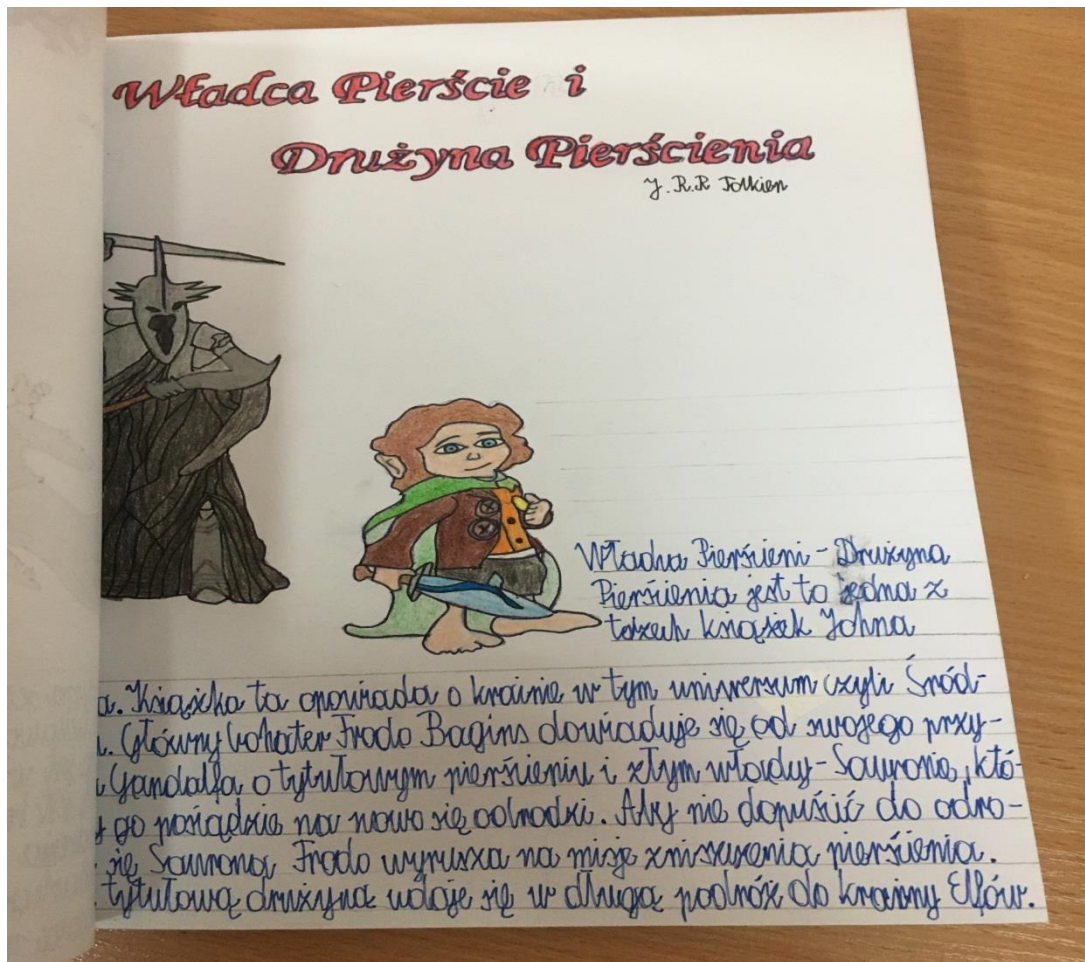 Władca Pierście i
Drużyna Pierścienia
J. R. R Tolkien
Władca Pierścieni - Drużyna
Pierścienia jest to jedna z
trzech książek Johna
a. Książka ta opowiada o krainie w tym uniwersum czyli Śród-
. Główny bohater Frodo Bagins dowiaduje się od swojego przy-
Gandalfa o tytułowym pierścieniu i złym władcy - Sauronie, któ-
y go posiądzie na nowo się odrodzi. Aby nie dopuścić do odro-
się Saurona Frodo wyrusza na misje zniszczenia pierścienia.
tytułową drużyna udaje się w długą podróż do krainy Elfów.